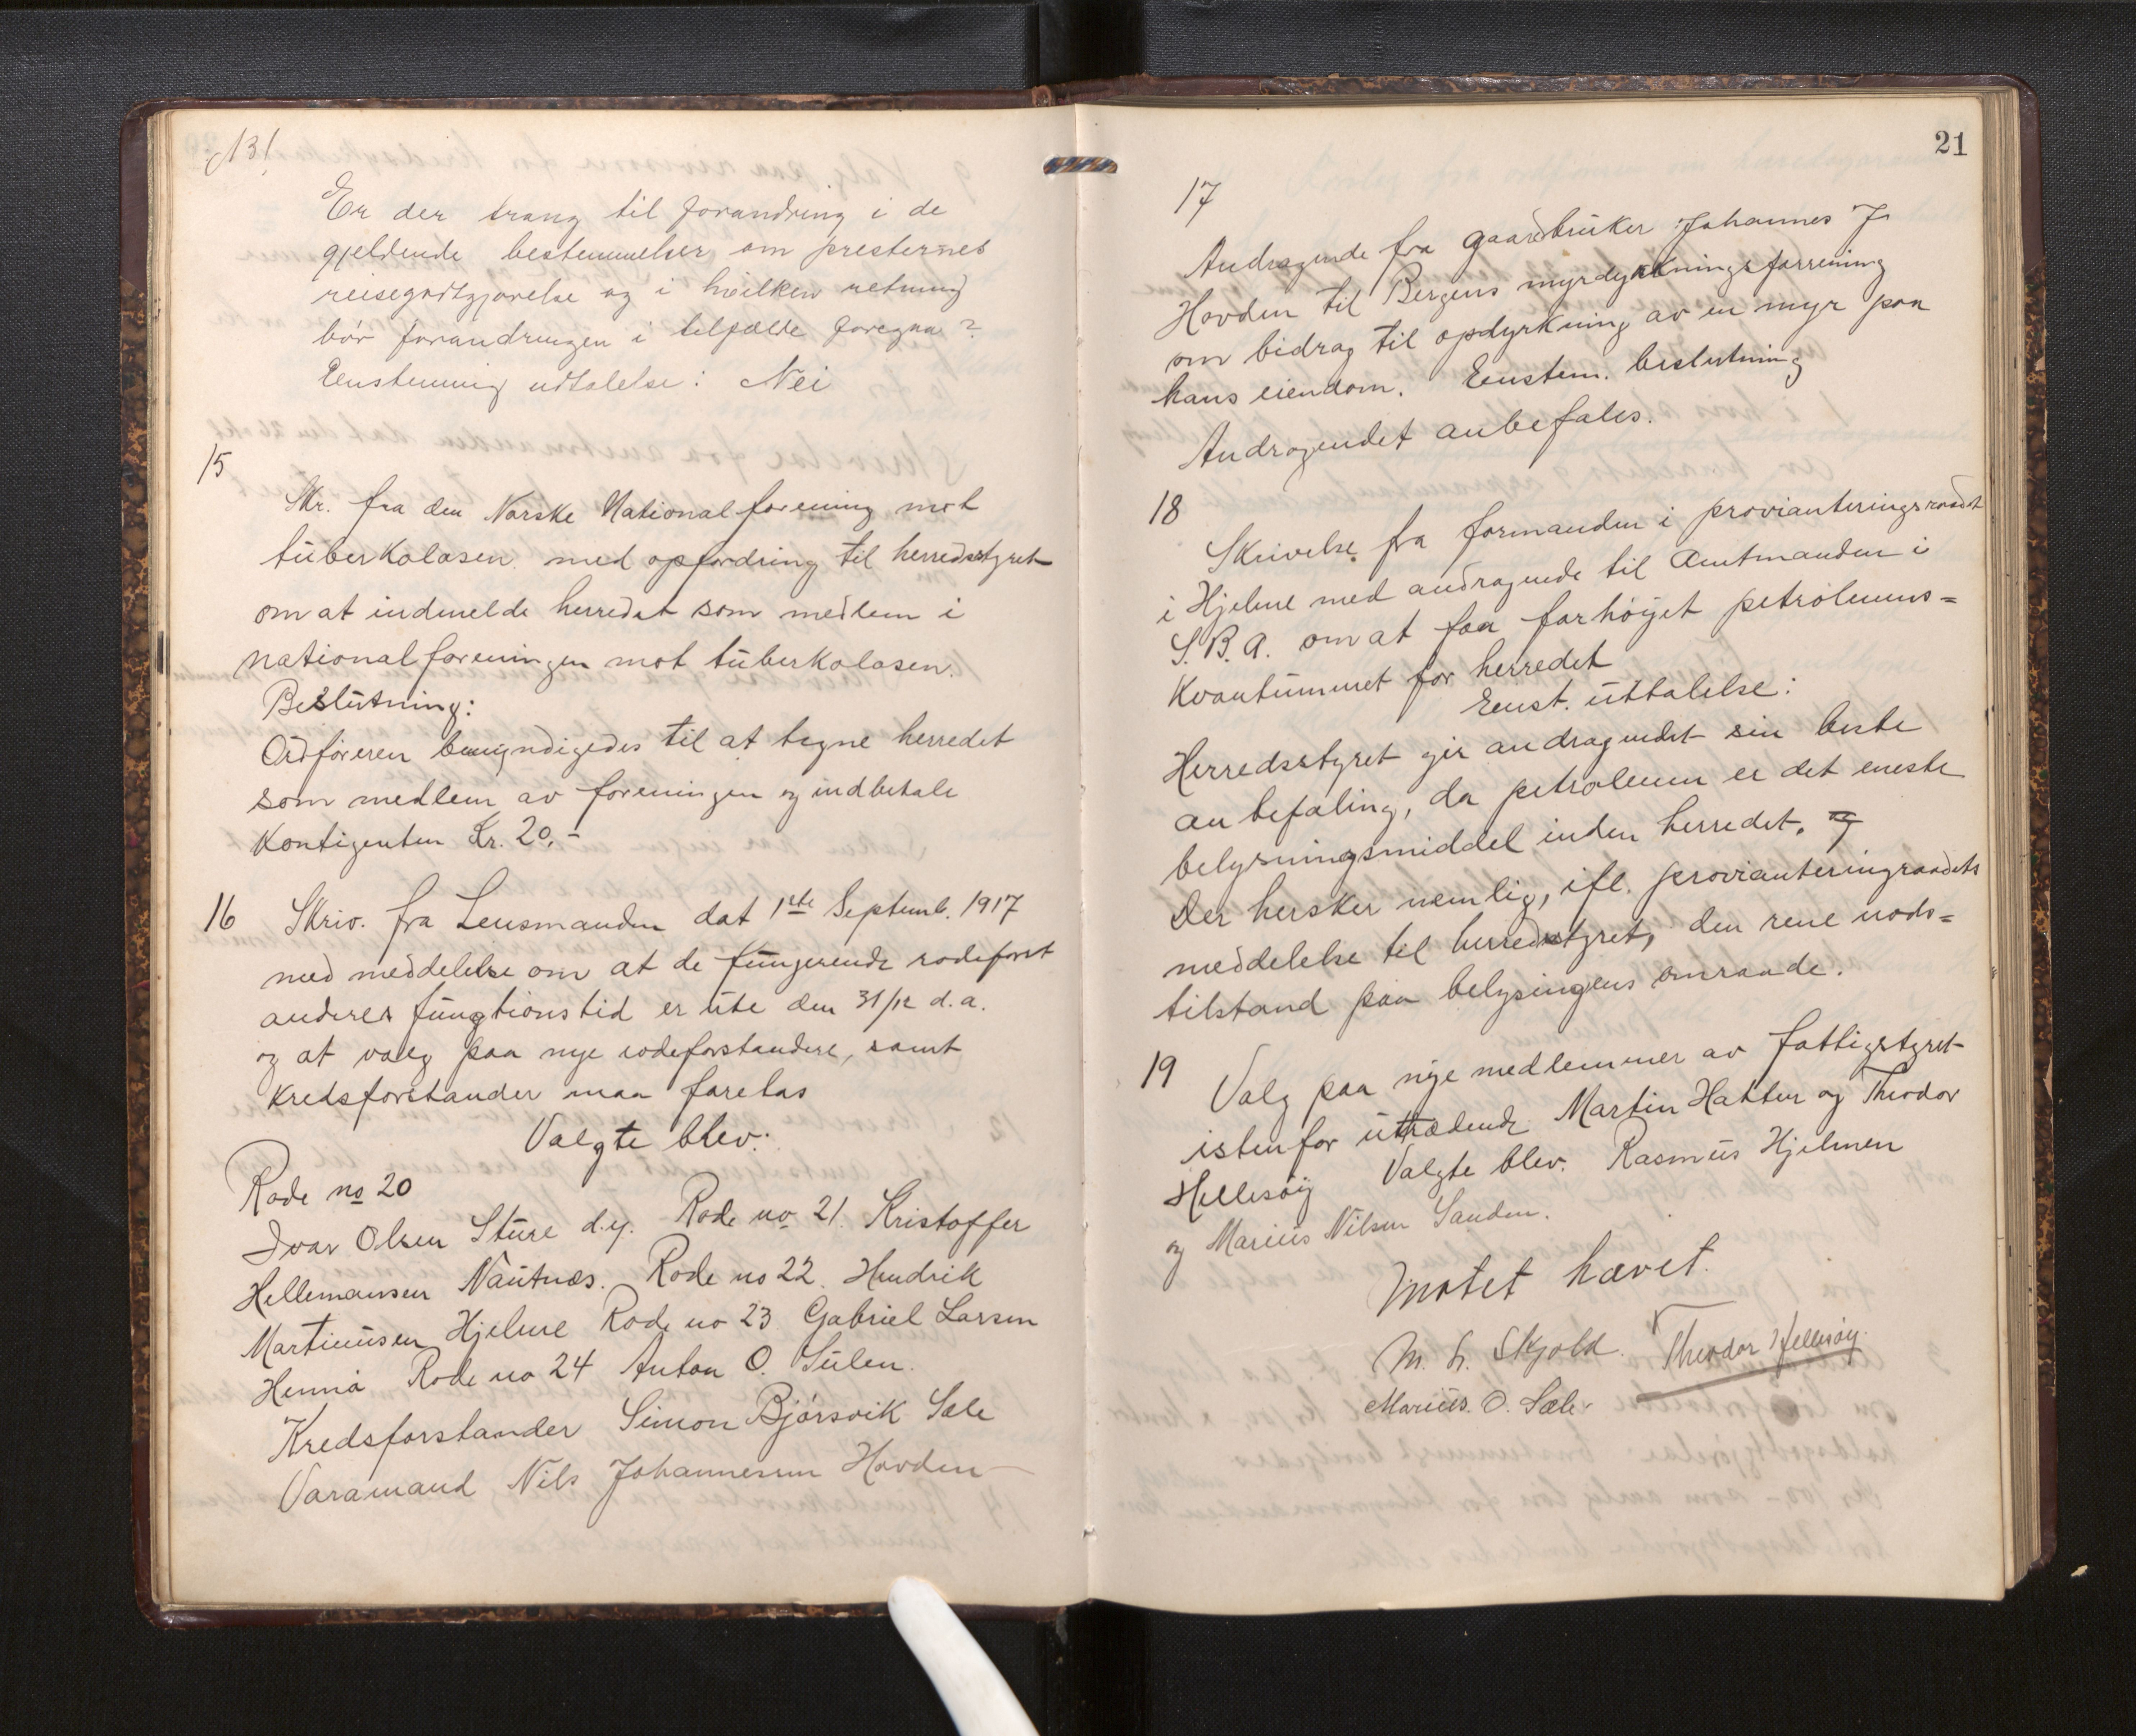 13!
Er der trang til forandring i de
gjeldende bestemmelser om presternes
reisegodtgjørelse og i hvilken retning
bør forandringen i tilfælde foregaa?
Eenstemmig udtalelse: Nei
15
Skr. fra den Norske National forening mot
tuberkolosen med opfordring til herredsstyret
om at indmelde herredet som medlem i
nationalforeningen mot tuberkolosen.
Beslutning:
Ordføreren bemyndigedes til at tegne herredet
som medlem av foreningen og indbetale
Kontigenten Kr. 20,-
16 Skriv. fra Lensmanden dat 1ste Septemb. 1917
med meddelelse om at de fungerende rodeforst
anderes fungtionstid er ute den 31/12 d.a.
og at valg paa nye rodeforstandere, samt
kredsforstander maa foretas
Valgte blev:
Rode no 20
Ivar Olsen Sture d.y. Rode no 21. Kristoffer
Hellemansen Nautnes. Rode no 22. Hendrik
Martinusen Hjelme Rode no 23 Gabriel Larsen
Hennø Rode no 24 Anton O. Sulen.
Kredsforstander Simon Bjørsvik Sæle
Varamand Nils Johannessen Hovden
21
17
Andragende fra gaardbruker Johannes J.
Hovden til Bergens myrdyrkningsforrening
om bidrag til opdyrkning av en myr paa
hans eiendom. Eenstem. beslutning
Andragendet anbefales.
18
Skrivelse fra formanden i provianteringsraadet
i Hjelme med andragende til Amtmanden i
S. B. A. om at faa forhøiet petroleums=
Kvantummet for herredet
Enst. uttalelse:
Herredsstyret gir andragendet sin beste
anbefaling, da petroleum er det eneste
belysningsmiddel inden herredet. og
Der hersker nemlig, ifl. provianteringraadets
meddelelse til herredsstyret, den rene nøds=
tilstand paa belysingens omraade.
19 Valg paa nye medlemmer av fattigstyret
istenfor uttrædende Martin Hatten og Theodor
Hellesøy Valgte blev. Rasmus Hjelmen
og Marius Nilsen Sanden.
Møtet hævet.
M. L. Skjold. Theodor Hellesøy.
Marius. O. Sæle.